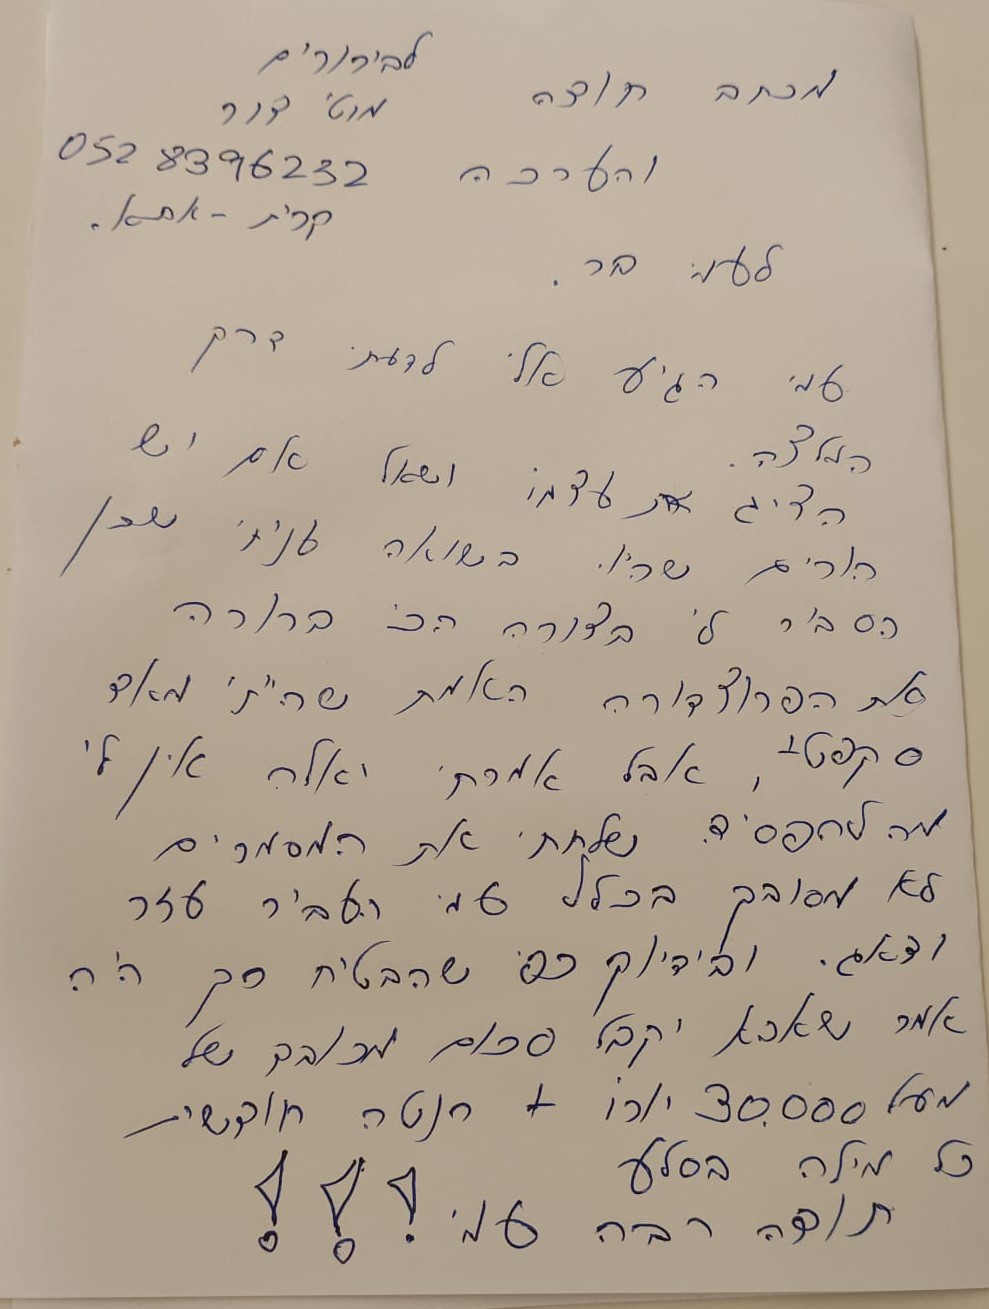 לבירורים
מוטי דור
052 8396232
קרית - אתא.
מכתב תודה
והערכה
לעמי בר.
עמי הגיע אלי לדעתי דרך
המלצה.
הציג את עצמו ושאל אם יש
הורים שהיו בשואה עניתי שכן
הסביר לי בצורה הכי ברורה
את הפרוצדורה האמת שהייתי מאד
סקפטי, אבל אמרתי יאלה אין לי
מה להפסיד שלחתי את המסמרים
לא מסובך בכלל עמי העביר עזר
ודאג. ובידיוק כפי שהבטיח כך היה
אמר שאבא יקבל סכום מכובד של
מעל 30.000 יורו + רנטה חודשית
כל מילה בסלע
תודה רבה עמי !!!